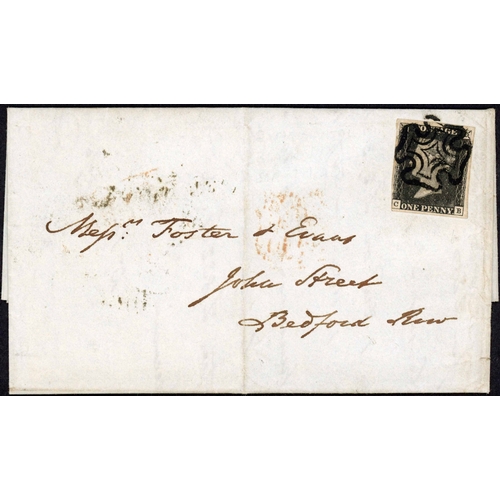 POSTAGE
C ONE PENNY B
Messrs Foster & Evans
John Street
Bedford Row